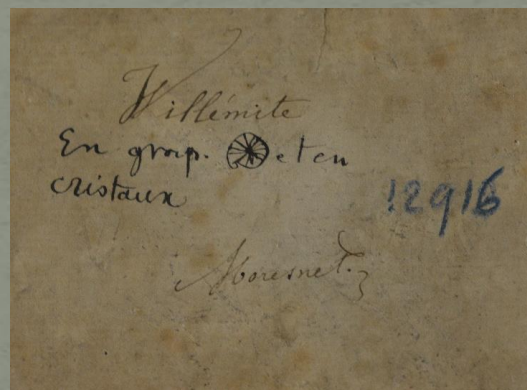 Willémite
En group. et en
cristaux
12916
Moresnet.